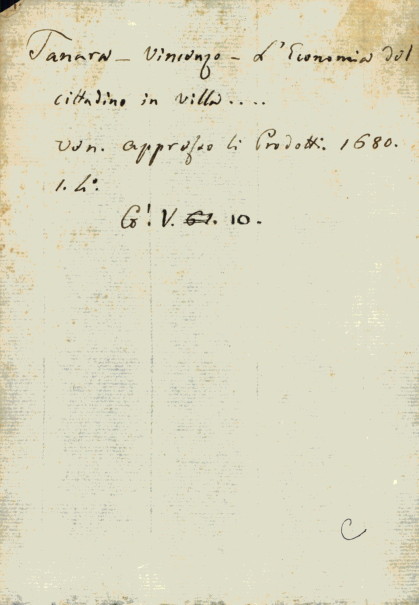 Tanara - Vincenzo - L'Economia del
cittadino in villa....
Ven. appresso li Prodotti. 1680.
1. 4.°
G! V. 10.
C